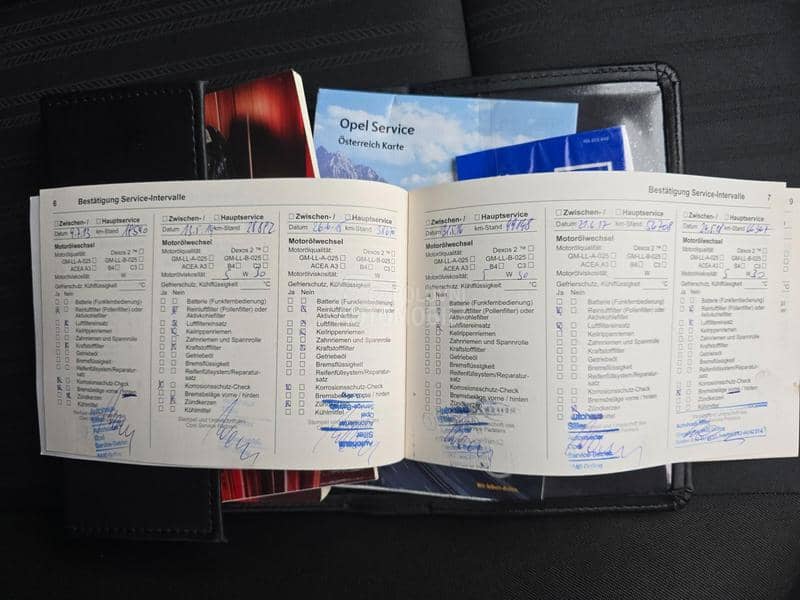 Opel Service
Österreich Karte
6 Bestätigung Service-Intervalle
Zwischen-/ Hauptservice
Datum 9.7.13 km-Stand
Motorölwechsel
Motorölqualität: Dexos 2 ™
GM-LL-A-025 GM-LL-B-025
ACEA A3 B4 C3
Motorölviskosität: 5 W 30
Gefrierschutz, Kühlflüssigkeit °C
Ja Nein
Batterie (Funkfernbedienung)
Reinluftfilter (Pollenfilter) oder
Aktivkohlefilter
Luftfiltereinsatz
Keilrippenriemen
Zahnriemen und Spannrolle
Kraftstofffilter
Getriebeöl
Bremsflüssigkeit
Reifenfüllsystem/Reparatur-
satz
Korrosionsschutz-Check
Bremsbeläge vorne / hinten
Zündkerzen
Kühlmittel
Autohaus
Opel
Service-Betrieb
Zwischen-/ Hauptservice
Datum km-Stand
Motorölwechsel
Motorölqualität: Dexos 2 ™
GM-LL-A-025 GM-LL-B-025
ACEA A3 B4 C3
Motorölviskosität: 5 W 30
Gefrierschutz, Kühlflüssigkeit °C
Ja Nein
Batterie (Funkfernbedienung)
Reinluftfilter (Pollenfilter) oder
Aktivkohlefilter
Luftfiltereinsatz
Keilrippenriemen
Zahnriemen und Spannrolle
Kraftstofffilter
Getriebeöl
Bremsflüssigkeit
Reifenfüllsystem/Reparatur-
satz
Korrosionsschutz-Check
Bremsbeläge vorne / hinten
Zündkerzen
Kühlmittel
Stempel und Unterschrift des
Opel Service Partners
Zwischen-/ Hauptservice
Datum km-Stand
Motorölwechsel
Motorölqualität: Dexos 2 ™
GM-LL-A-025 GM-LL-B-025
ACEA A3 B4 C3
Motorölviskosität: W
Gefrierschutz, Kühlflüssigkeit °C
Ja Nein
Batterie (Funkfernbedienung)
Reinluftfilter (Pollenfilter) oder
Aktivkohlefilter
Luftfiltereinsatz
Keilrippenriemen
Zahnriemen und Spannrolle
Kraftstofffilter
Getriebeöl
Bremsflüssigkeit
Reifenfüllsystem/Reparatur-
satz
Korrosionsschutz-Check
Bremsbeläge vorne / hinten
Zündkerzen
Kühlmittel
Autohaus
Bestätigung Service-Intervalle 7
Zwischen-/ Hauptservice
Datum km-Stand
Motorölwechsel
Motorölqualität: Dexos 2 ™
GM-LL-A-025 GM-LL-B-025
ACEA A3 B4 C3
Motorölviskosität: 5 W 30
Gefrierschutz, Kühlflüssigkeit °C
Ja Nein
Batterie (Funkfernbedienung)
Reinluftfilter (Pollenfilter) oder
Aktivkohlefilter
Luftfiltereinsatz
Keilrippenriemen
Zahnriemen und Spannrolle
Kraftstofffilter
Getriebeöl
Bremsflüssigkeit
Reifenfüllsystem/Reparatur-
satz
Korrosionsschutz-Check
Bremsbeläge vorne / hinten
Zündkerzen
Zwischen-/ Hauptservice
Datum 21.6.17 km-Stand
Motorölwechsel
Motorölqualität: Dexos 2 ™
GM-LL-A-025 GM-LL-B-025
ACEA A3 B4 C3
Motorölviskosität: W
Gefrierschutz, Kühlflüssigkeit °C
Ja Nein
Batterie (Funkfernbedienung)
Reinluftfilter (Pollenfilter) oder
Aktivkohlefilter
Luftfiltereinsatz
Keilrippenriemen
Zahnriemen und Spannrolle
Kraftstofffilter
Getriebeöl
Bremsflüssigkeit
Reifenfüllsystem/Reparatur-
satz
Korrosionsschutz-Check
Bremsbeläge vorne / hinten
Zündkerzen
Autohaus
Service-Betrieb
Zwischen-/ Hauptservice
Datum km-Stand
Motorölwechsel
Motorölqualität: Dexos 2 ™
GM-LL-A-025 GM-LL-B-025
ACEA A3 B4 C3
Motorölviskosität: 5 W 30
Gefrierschutz, Kühlflüssigkeit °C
Ja Nein
Batterie (Funkfernbedienung)
Reinluftfilter (Pollenfilter) oder
Aktivkohlefilter
Luftfiltereinsatz
Keilrippenriemen
Zahnriemen und Spannrolle
Kraftstofffilter
Getriebeöl
Bremsflüssigkeit
Reifenfüllsystem/Reparatur-
satz
Korrosionsschutz-Check
Bremsbeläge vorne / hinten
Zündkerzen
Kühlmittel
9